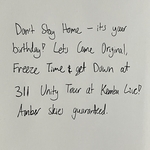 Don't Stay Home - it's your
birthday? Lets Come Original,
Freeze Time & get Down at
311 Unity Tour at Kemba Live?
Amber skies guaranteed.